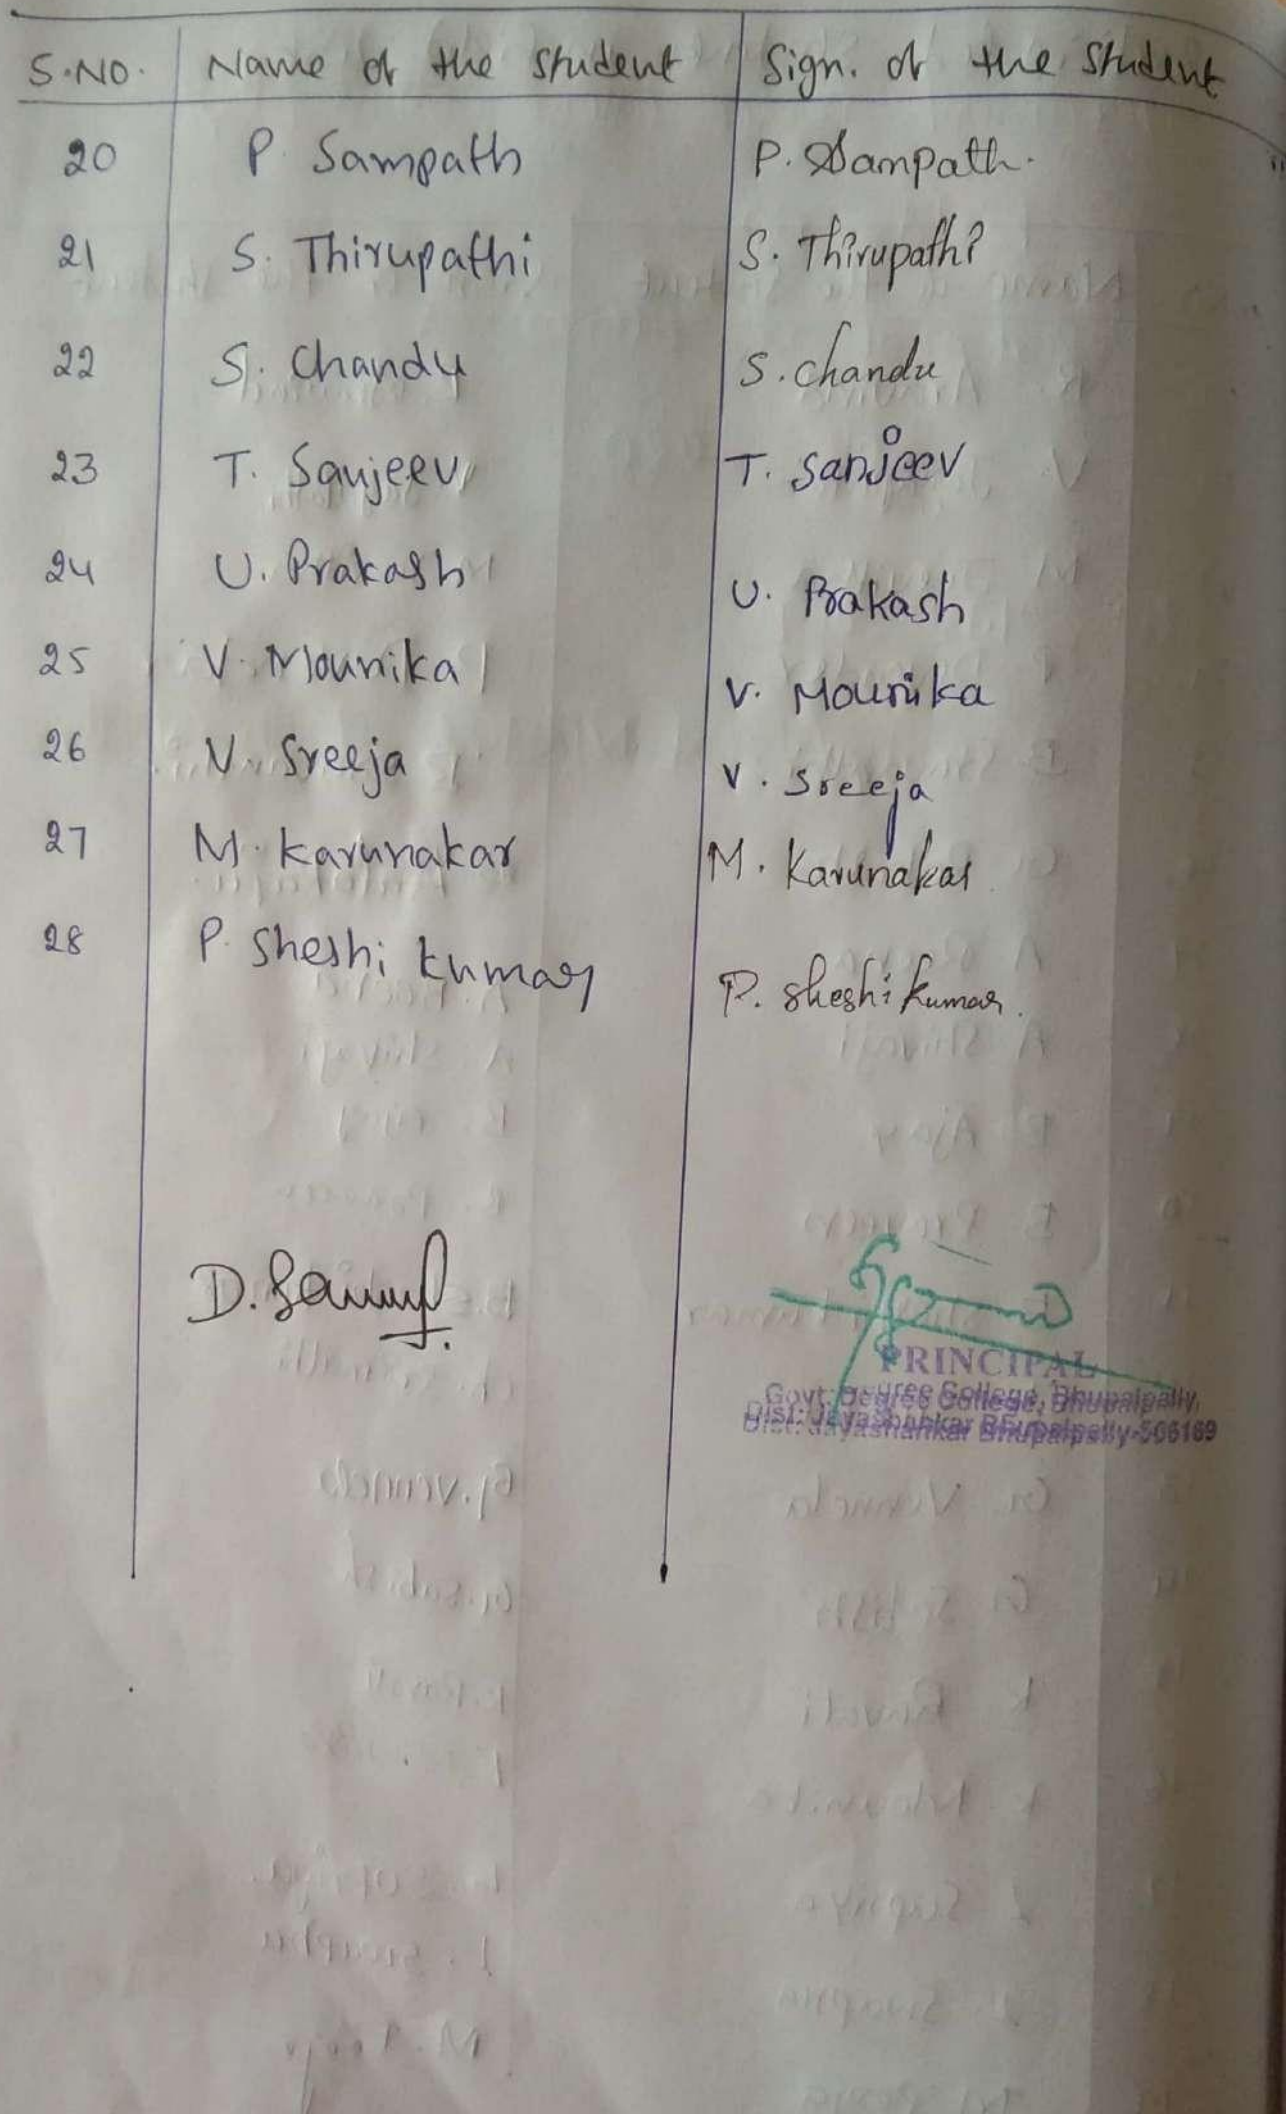 S.NO. Name of the Student Sign. of the Student
20 P. Sampath P. Sampath.
21 S. Thirupathi S. Thirupathi
22 S. Chandu S. chandu
23 T. Sanjeev T. Sanjeev
24 U. Prakash U. Prakash
25 V. Mounika V. Mounika
26 V. Sreeja V. Sreeja
27 M. Karunakar M. Karunakar
28 P. Sheshi Kumar P. Sheshi Kumar.
PRINCIPAL
Govt. Degree College, Bhupalpally,
Dist: Jayashankar Bhupalpally-506169